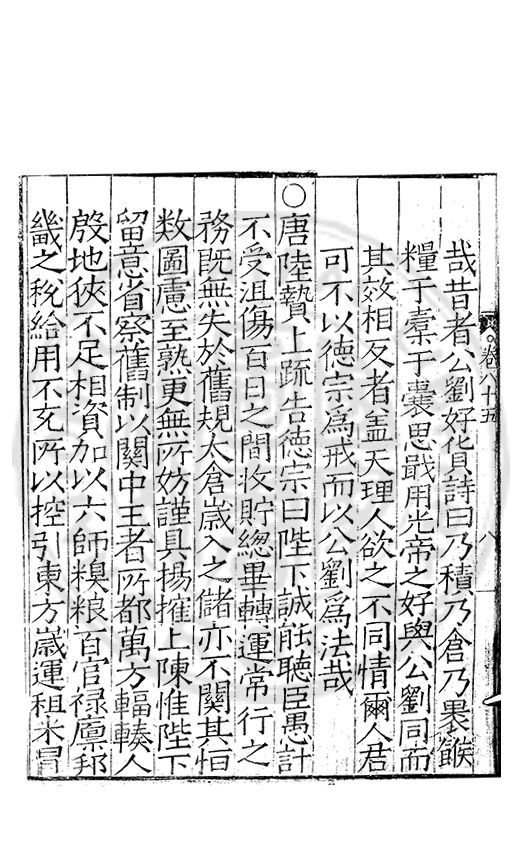 卷八十五
八
哉昔者公劉好貨詩曰乃積乃倉乃裹餱
糧于橐于囊思戢用光帝之好與公劉同而
其效相反者盖天理人欲之不同情爾人君
可不以德宗爲戒而以公劉爲法哉
○唐陸贄上疏告德宗曰陛下誠能聽臣愚計
不受沮傷百日之間收貯總畢轉運常行之
務旣無失於舊規太倉嵗入之儲亦不闕其恒
数圖慮至熟更無所妨謹具揚搉上陳惟陛下
留意省察舊制以關中王者所都萬方輻輳人
殷地狹不足相資加以六師糗粮百官禄廪邦
畿之稅給用不充所以控引東方嵗運租米冒